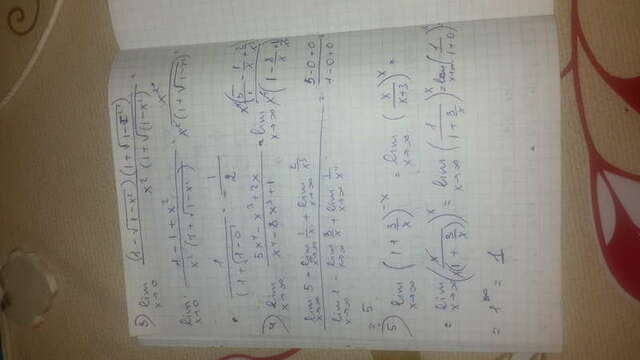 3) lim x→0 (1-√1-x²)(1+√1-x²) / x²(1+√(1-x²)) =
lim x→0 1-1+x² / x²(1+√1-x²) = x² / x²(1+√1-x²)
= 1 / (1+√1-0) = 1/2
4) lim x→∞ 5x⁴-x³+2x / x⁴-8x³+1 = lim x→∞
lim x→∞ 5 - lim x→∞ 1/x + lim x→∞ 2/x³ / lim x→∞ 1 - lim x→∞ 8/x + lim x→∞ 1/x⁴ = 5-0+0 / 1-0+0
= 5
5) lim x→∞ (1+3/x)^-x = lim x→∞ (x/x+3)^x =
= lim x→∞ (x/x(1+3/x))^x = lim x→∞ (1/1+3/x)^x = lim x→∞ (1/1+0)
= 1^∞ = 1